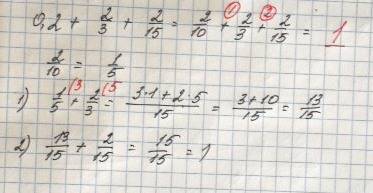 0,2 + 2/3 + 2/15 = 2/10 +① 2/3 +② 2/15 = 1
2/10 = 1/5
1) 1/5 (3 + 2/3 (5 = 3·1+2·5/15 = 3+10/15 = 13/15
2) 13/15 + 2/15 = 15/15 = 1